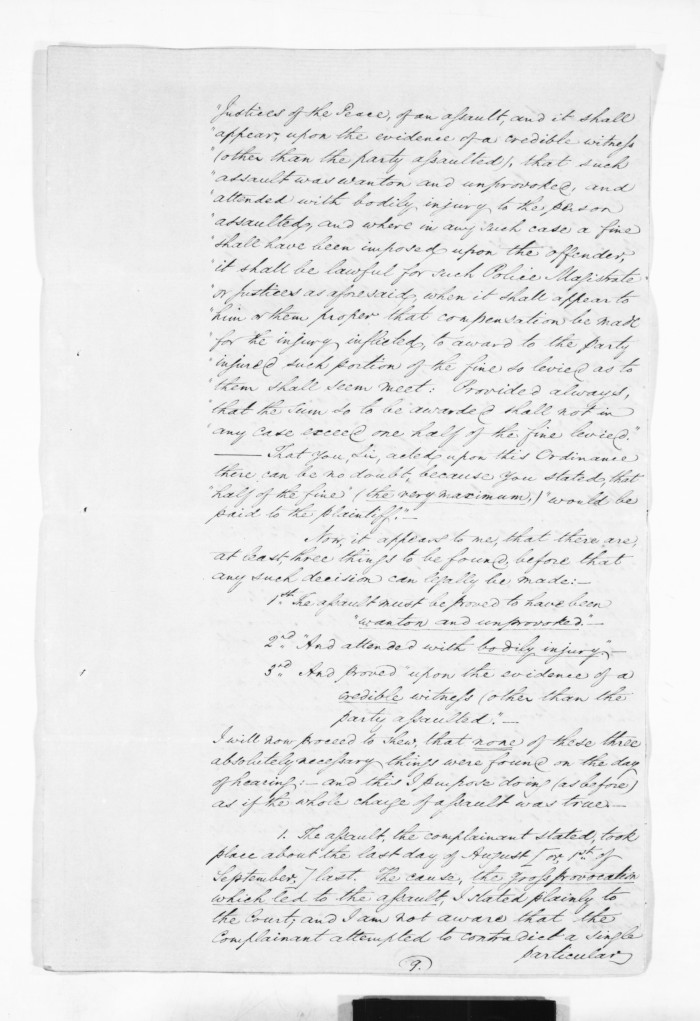 "Justices of the Peace, of an assault, and it shall
"appear, upon the evidence of a credible witness
"(other than the party assaulted), that such
"assault was wanton and unprovoked, and
"attended with bodily injury to the person
"assaulted, and where in any such case a fine
"shall have been imposed upon the offender,
"it shall be lawful for such Police Magistrate
"or Justices as aforesaid, when it shall appear to
"him or them proper that compensation be made
"for the injury inflicted, to award to the party
"injured such portion of the fine so levied as to
"them shall seem meet: Provided always,
"that the sum so to be awarded shall not in
"any case exceed one half of the fine levied."
— That you, Sir, acted upon this Ordinance
there can be no doubt, because you stated, that
"half of the fine" (the very maximum,) "would be
paid to the plaintiff."—
Now, it appears to me, that there are,
at least, three things to be found, before that
any such decision can legally be made:—
1st. The assault must be proved to have been
"wanton and unprovoked."—
2nd. "And attended with bodily injury".—
3rd. And proved "upon the evidence of a
credible witness (other than the
party assaulted".—
I will now proceed to shew, that none of these three
absolutely necessary things were found on the day
of hearing:— and this I purpose doing (as before)
as if the whole charge of assault was true.—
1. The assault, the complainant stated, took
place about the last day of August [or, 1st. of
September,] last. The cause, the gross provocation
which led to the assault, I stated plainly to
the Court; and I am not aware that the
Complainant attempted to contradict a single
particular
9.